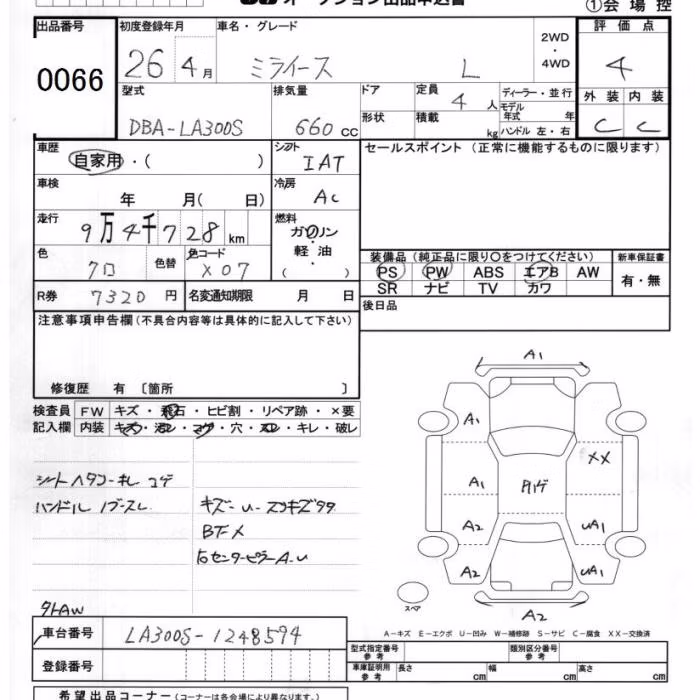 オークション出品申込書
①会場控
出品番号 初度登録年月 車名・グレード 2WD・4WD 評価点
0066 26年4月 ミライース L 4
型式 排気量 ドア 定員 ディーラー・並行 外装 内装
DBA-LA300S 660cc 4人 モデル年式 年 C C
形状 積載 kg ハンドル 左・右
車歴 自家用・( ) シフト IAT セールスポイント(正常に機能するものに限ります)
車検 年 月( 日) 冷房 AC
走行 9万4千728km 燃料 ガソリン・軽油( )
色 クロ 色替 色コード X07
装備品(純正品に限り○をつけてください) 新車保証書
PS PW ABS エアB AW 有・無
SR ナビ TV カワ
R券 7320円 名変通知期限 月 日 後日品
注意事項申告欄(不具合内容等は具体的に記入して下さい)
修復歴 有〔箇所 〕
検査員記入欄 FW キズ・飛石・ヒビ割・リペア跡・×要
内装 キズ・汚レ・コゲ・穴・スレ・キレ・破レ
シートヘタコーキレ コゲ
ハンドル
キズー U-
BTX
センターピラーA-U
A1
A1
XX
A1
A2 UA1
A2 UA1
A2
スペア
A-キズ E-エクボ U-凹み W-補修跡 S-サビ C-腐食 XX-交換済
車台番号 LA300S-1248594
登録番号
型式指定番号 参考 類別区分番号 参考
車庫証明用 参考 長さ cm 幅 cm 高さ cm
希望出品コーナー(コーナーは各会場により異なります。)